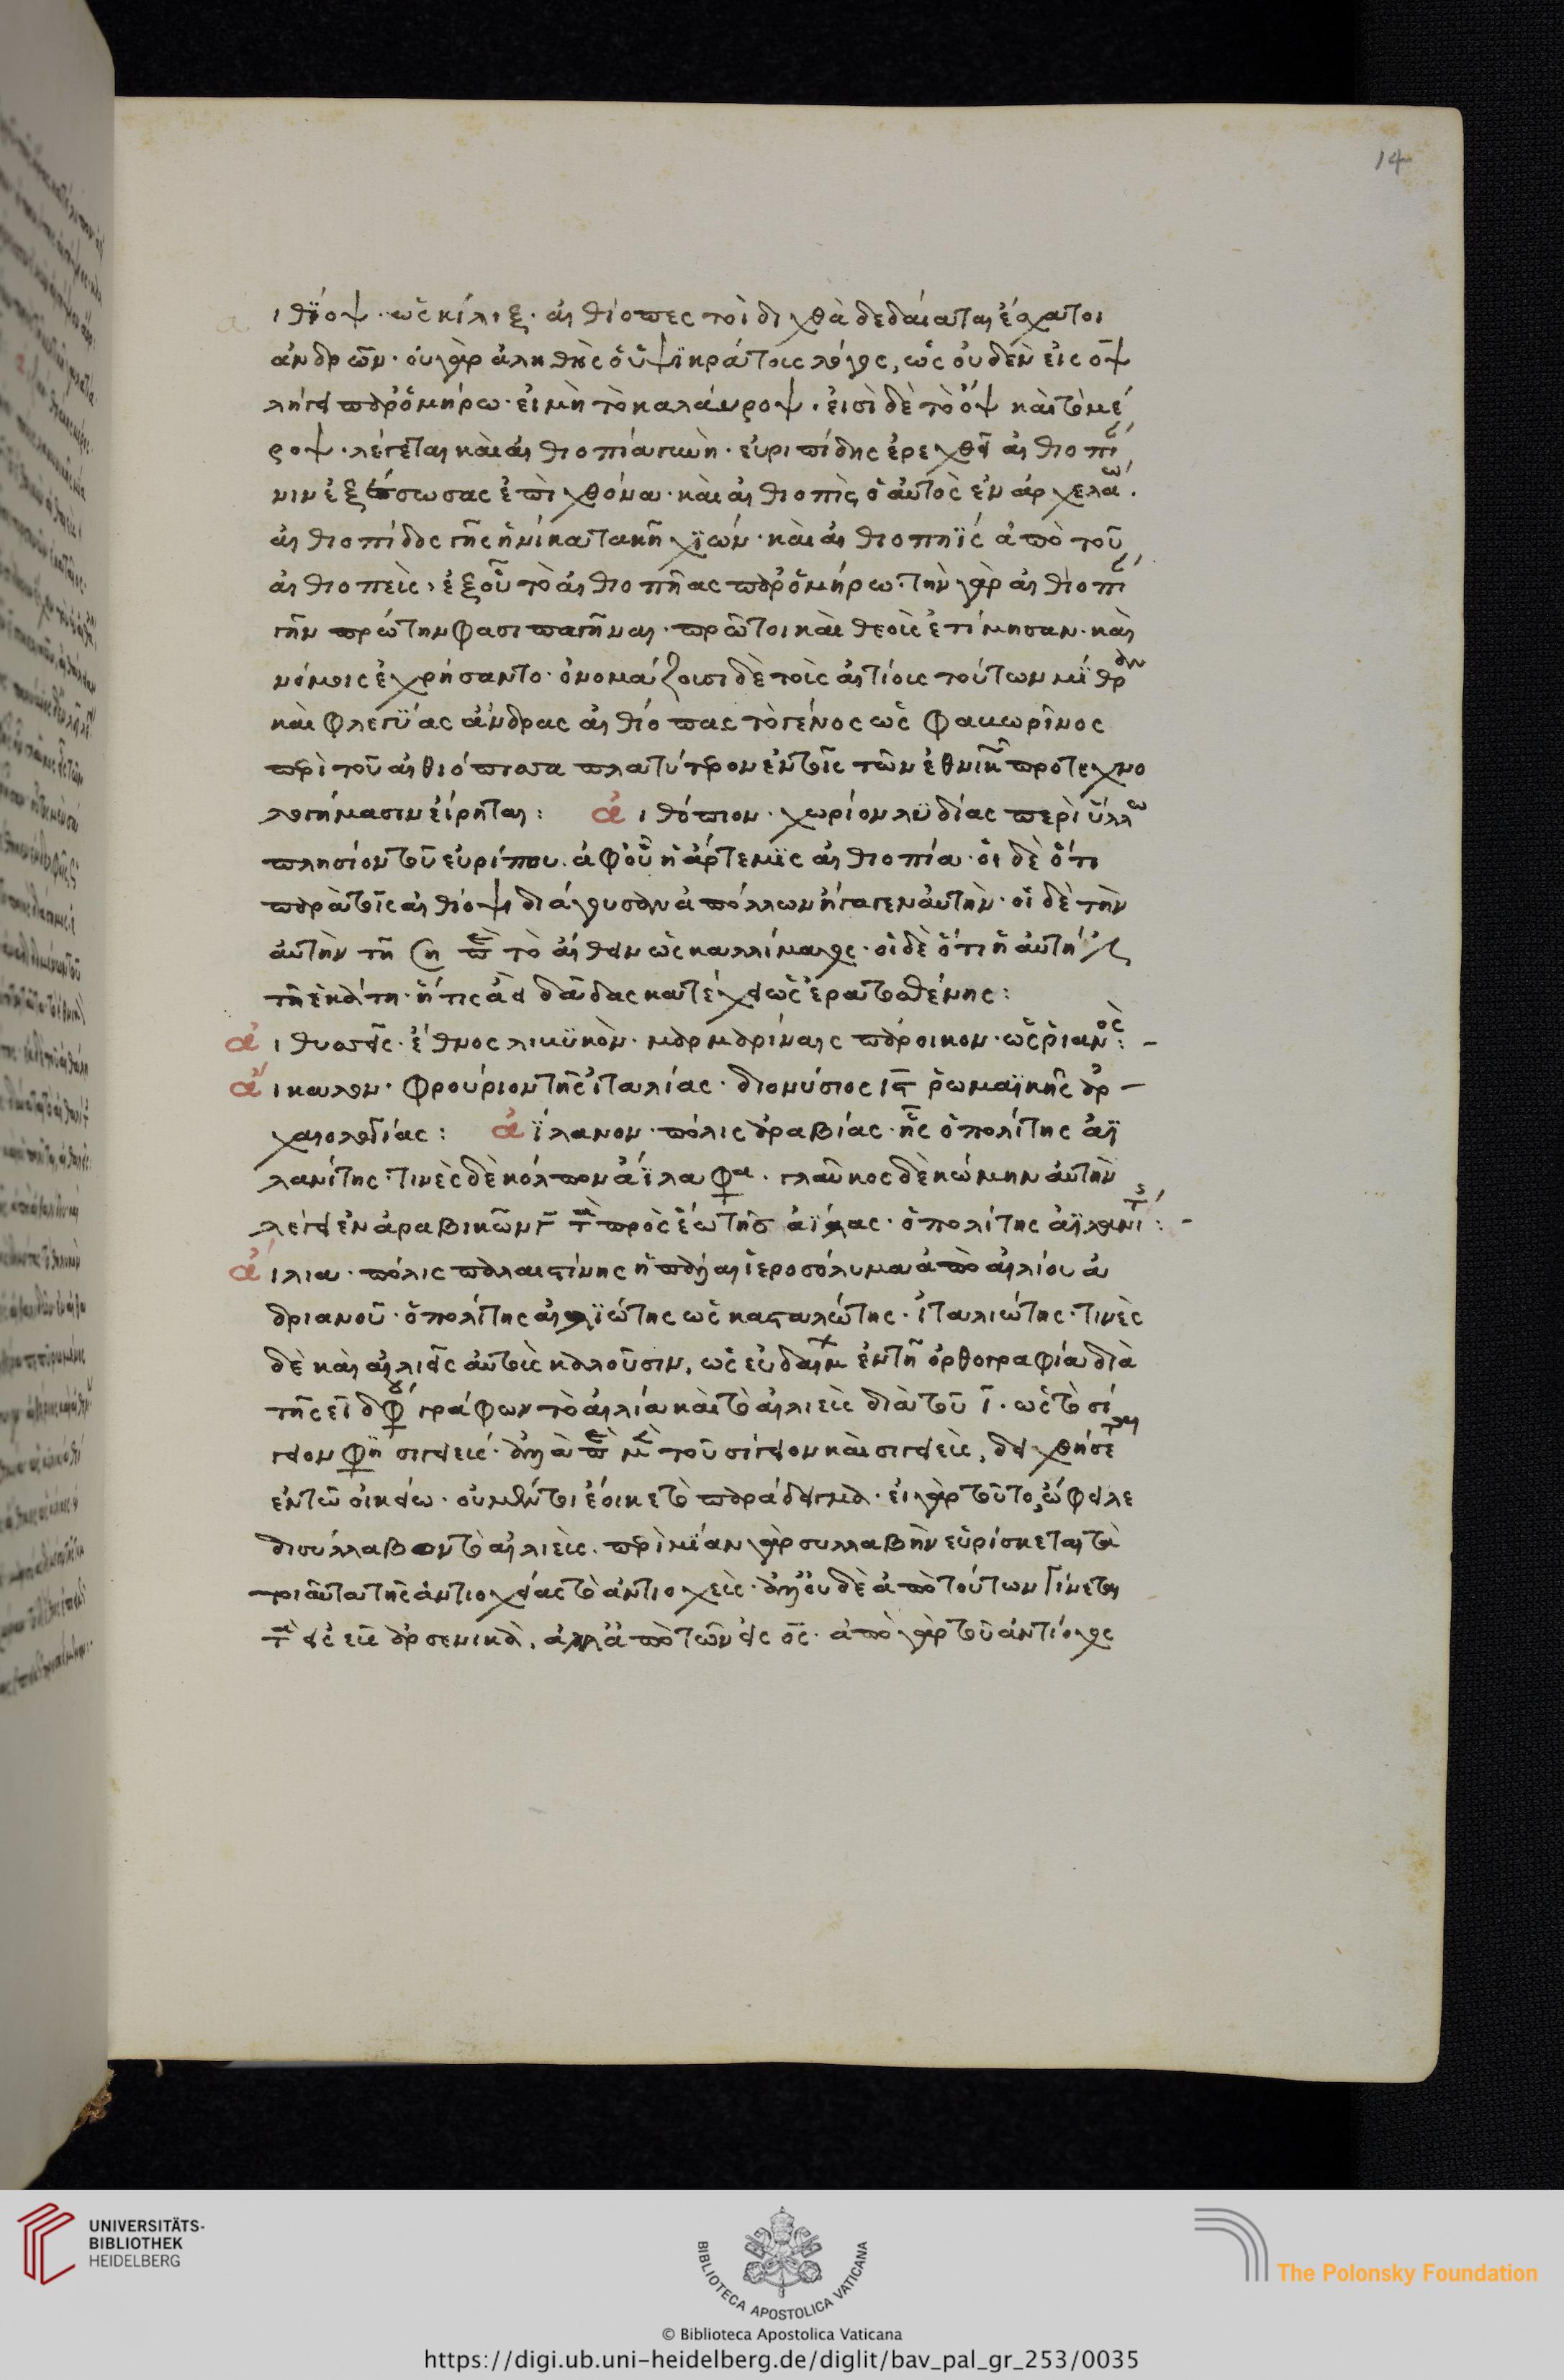 14
ιθίοψ· ὡς κίλιξ· αἰθίοπες τοὶ διχθὰ δεδαίαται ἔσχατοι
ἀνδρῶν· οὐ γὰρ ἀληθὴς ὁ ὑψικράτους λόγος, ὡς οὐδὲν εἰς οψ
λήγει παρ ὁμήρω· εἰ μὴ τὸ καλάυροψ· εἰσὶ δὲ τὸ ὄψ καὶ τὸ μέ
ροψ· λέγεται καὶ αἰθιοπία γυνὴ· εὐριπίδης ἐρεχθεῖ αἰθιοπί
νιν ἐξέσωσας ἐπὶ χθόνα· καὶ αἰθιοπὶς ὁ αὐτὸς ἐν ἀρχελάω.
αἰθιοπίδος γῆς ἡνίκα τακῆ χιών· καὶ αἰθιοπηίς ἀπὸ τοῦ
αἰθιοπεὺς, ἐξ οὗ τὸ αἰθιοπῆας παρ ὁμήρω· τὴν γὰρ αἰθιοπί
γῆν πρώτην φασι παγῆναι· πρῶτοι καὶ θεοὺς ἐτίμησαν· καὶ
νόμοις ἐχρήσαντο· ὀνομάζουσι δὲ τοὺς αἰτίους τούτων μίθραν
καὶ φλεγύας ἄνδρας αἰθίοπας τὸ γένος ὡς φαωρῖνος
περὶ τοῦ αἰθιόπισσα πλατύτερον ἐν τοῖς τῶν ἐθνικῶν προτεχνο
λογήμασιν εἴρηται: ἀιθόπιον· χωρίον λυδίας περὶ ὕλλω
πλησίον τοῦ εὐρίπου. ἀφ οὗ ἡ ἄρτεμις αἰθιοπία· οἱ δὲ ὅτι
παρὰ τοῖς αἰθίοψι διάγουσαν ἀπόλλων ἤγαγεν αὐτὴν· οἱ δὲ τὴν
αὐτὴν τῆ σελήνη παρὰ τὸ αἴθειν ὡς καλλίμαχος· οἱ δὲ ὅτι ἡ αὐτή ἐστι
τῆ ἑκάτη· ἥτις ἀεὶ δᾶδας κατέχει ὡς ἐρατοσθένης:
ἀιθυσσεῖς· ἔθνος λιβυκὸν· μαρμαρίναις πάροικον· ὡς ῥιανὸς:
ἄικαλον· φρούριον τῆς ἰταλίας· διονύσιος ις ῥωμαϊκῆς ἀρ
χαιολογίας: ἀΐλανον· πόλις ἀραβίας· ἧς ὁ πολίτης ἀϊ
λανίτης· τινὲς δὲ κόλπον ἀΐλα φα· γλαῦκος δὲ κώμην αὐτὴν
λέγει ἐν ἀραβικῶν γ τὰ πρὸς ἕω τῆς ἀΐλας· ὁ πολίτης ἀϊλανίτης:
ἀιλια· πόλις παλαιστίνης ἡ πάλαι ἱεροσόλυμα ἀπὸ αἰλίου ἀ
δριανοῦ· ὁ πολίτης αἰλιώτης ὡς κασταλιώτης· ἰταλιώτης· τινὲς
δὲ καὶ αἰλιεῖς αὐτοὺς καλοῦσιν, ὡς εὐδαίμων ἐν τῆ ὀρθογραφία διὰ
τῆς ει διφθόγγου γράφων τὸ αἰλία καὶ τὸ αἰλιεὺς διὰ τοῦ ι. ὡς τὸ σί
γειον φη σιγειεύς· ἀλλὰ περὶ μὲν τοῦ σίγειον καὶ σιγειεὺς, δειχθήσεται
ἐν τῶ οἰκείω· οὐ μὴν τι ἔοικε τὸ παράδειγμα· εἰ γὰρ τοῦτο, ὤφειλε
δισύλλαβον τὸ αἰλιεὺς. παρὰ μίαν γὰρ συλλαβὴν εὑρίσκεται τὰ
τοιαῦτα τῆς ἀντιοχείας τὸ ἀντιοχεὺς· ἀλλ οὐδὲ ἀπὸ τούτων γίνεται
τὰ εις ευς ἀρσενικὰ, ἀλλὰ ἀπὸ τῶν εἰς ος· ἀπὸ γὰρ τοῦ ἀντίοχος
UNIVERSITÄTS-
BIBLIOTHEK
HEIDELBERG
BIBLIOTECA APOSTOLICA VATICANA
© Biblioteca Apostolica Vaticana
The Polonsky Foundation
https://digi.ub.uni-heidelberg.de/diglit/bav_pal_gr_253/0035